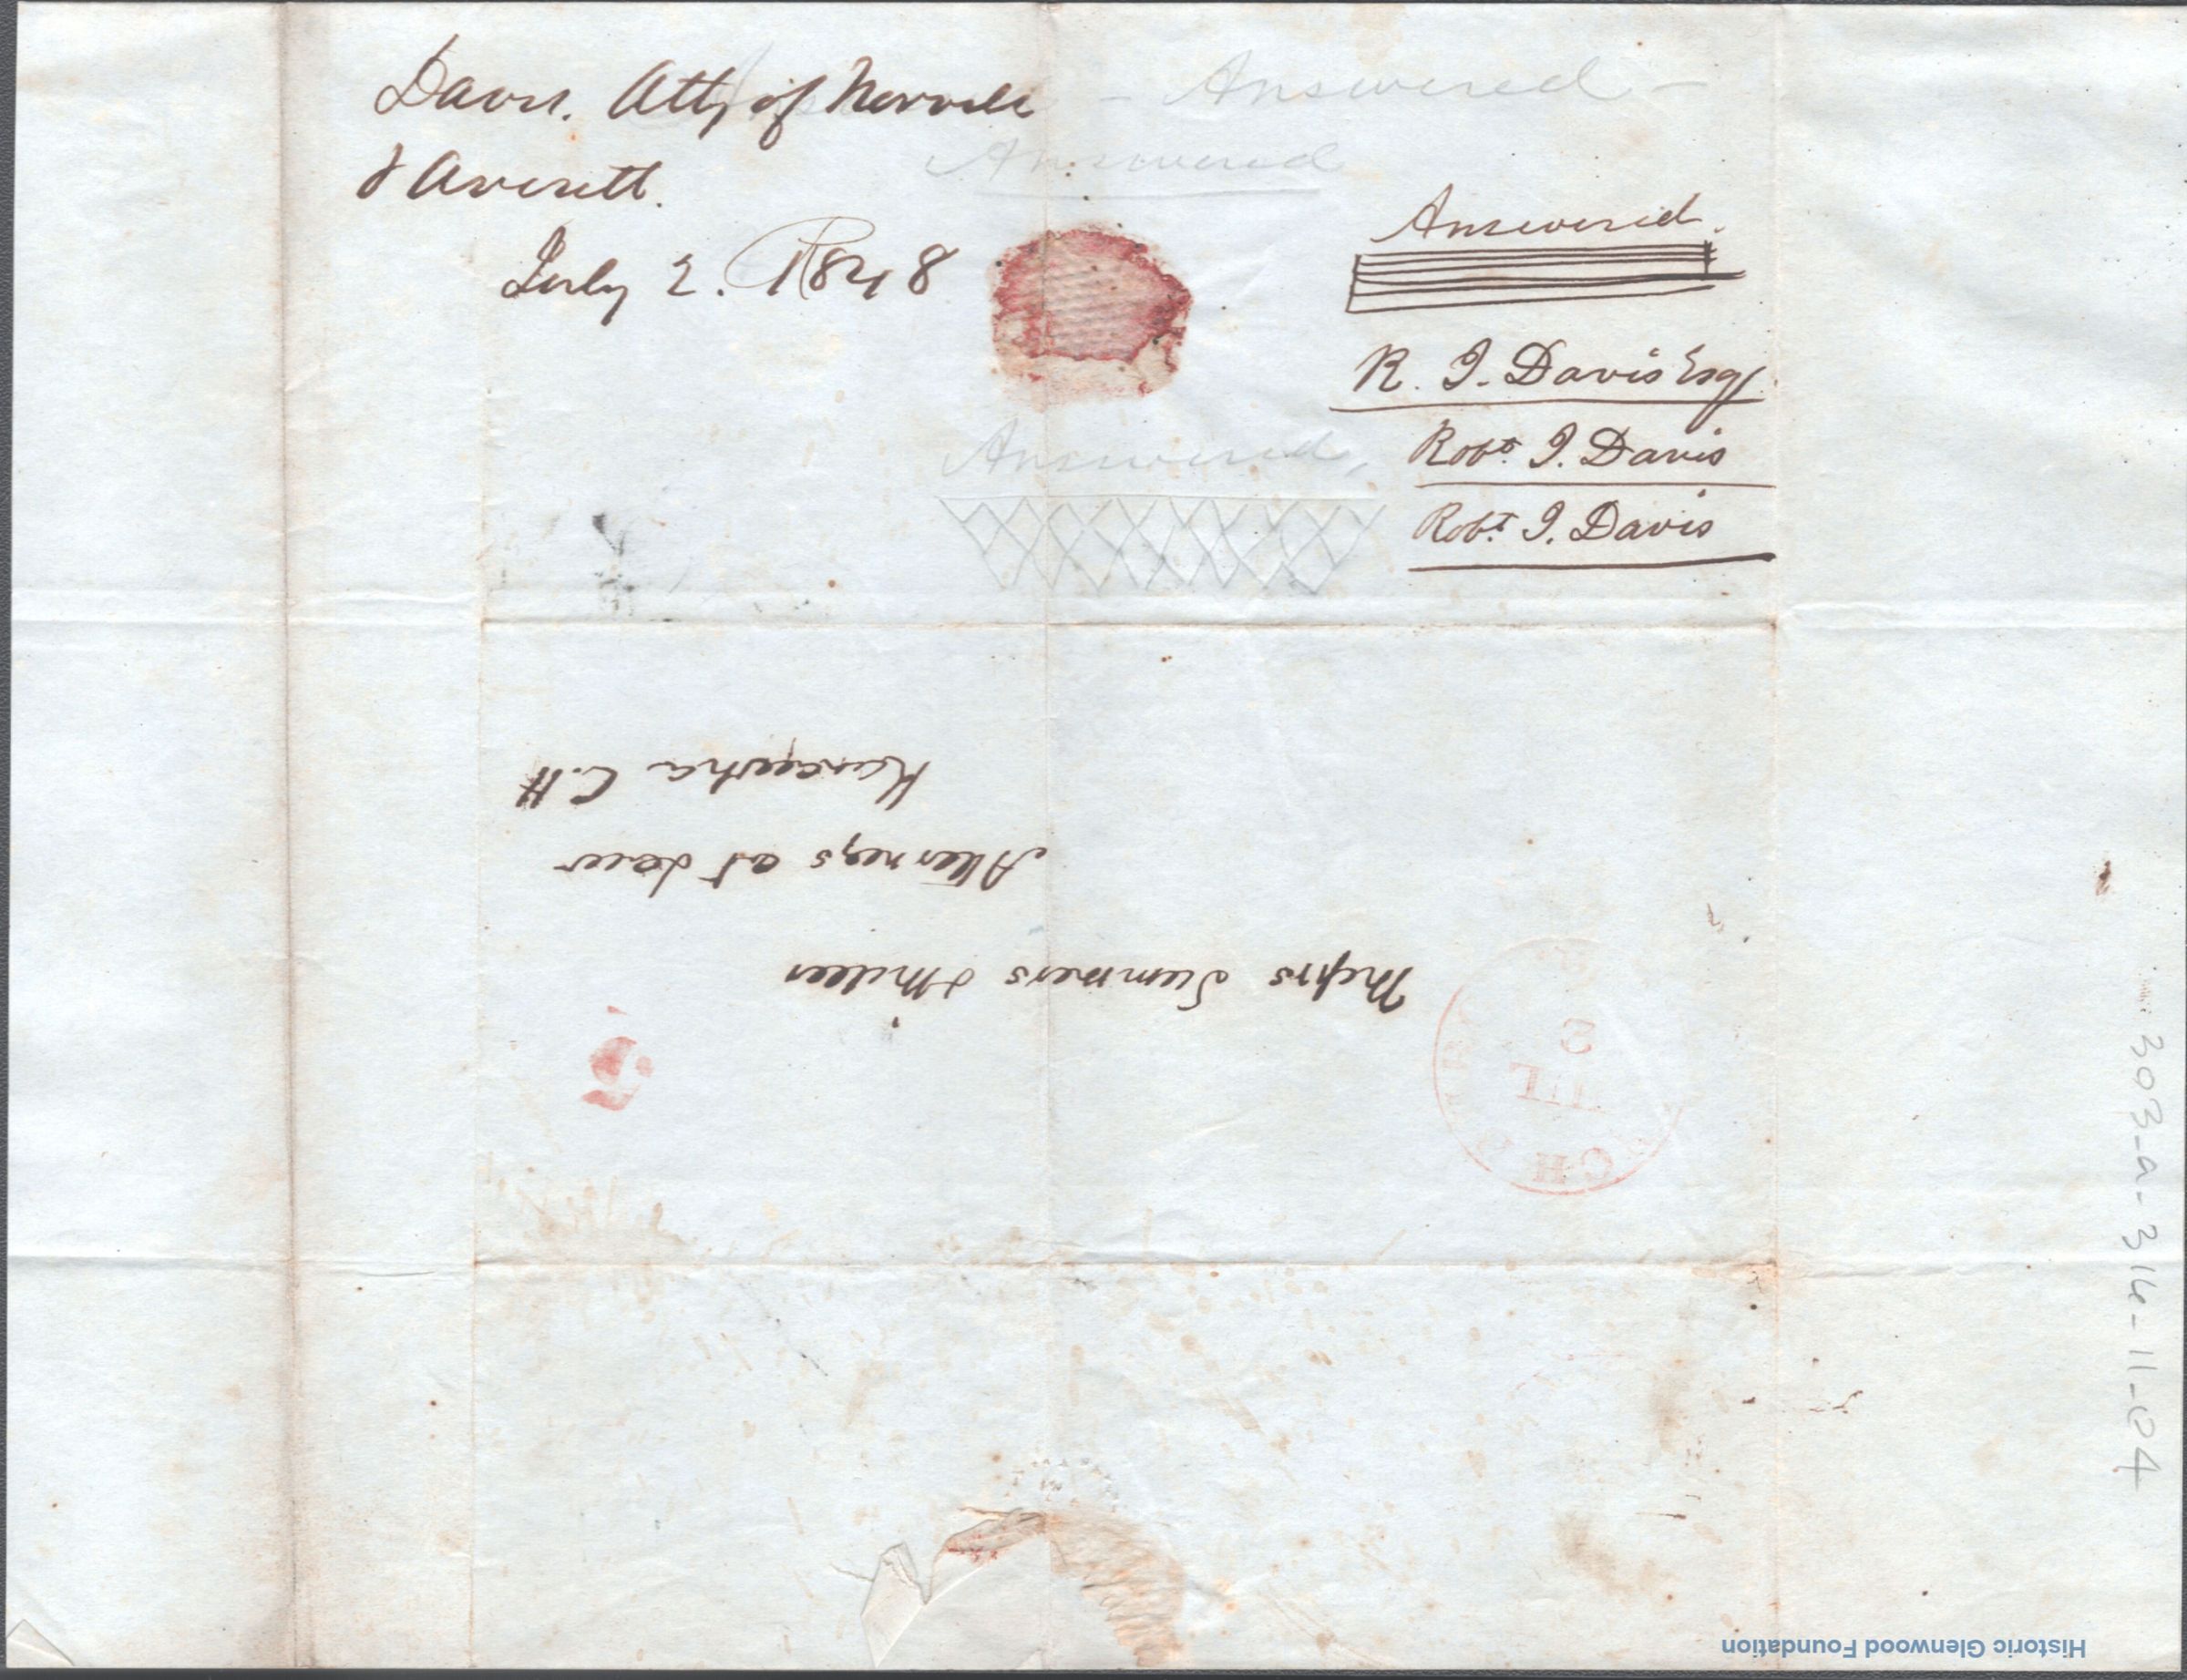 Davis. Atty of Norvell
& Averett.
July 2. 1848
- Answered -
Answered
Answered.
R. J. Davis Esq
Robt. J. Davis
Robt. J. Davis
Answered,
Messrs Summers & Miller
Attorneys at Law
Kanawha C. H
5
JUL
3
303-a-316-11-04
Historic Glenwood Foundation